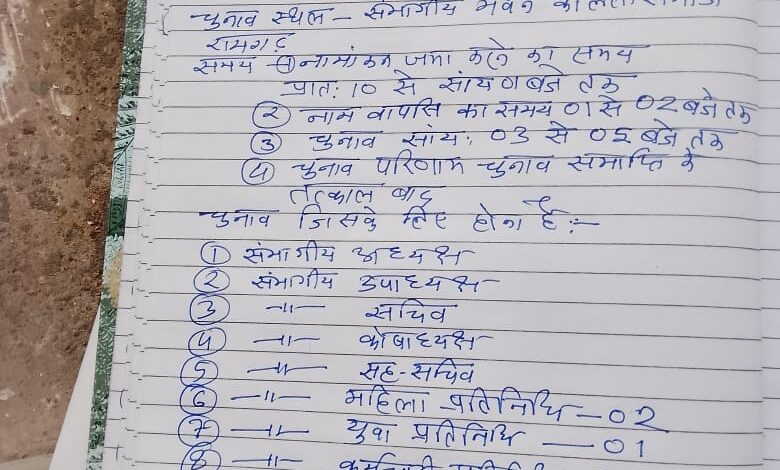 चुनाव स्थल - संभागीय भवन
रामगढ़
समय - ① नामांकन जमा करने का समय
प्रात: 10 से सांय 01 बजे तक
② नाम वापसि का समय 01 से 02 बजे तक
③ चुनाव सांय: 03 से 05 बजे तक
④ चुनाव परिणाम चुनाव समाप्ति के
तत्काल बाद
चुनाव जिसके लिए होना है :-
① संभागीय अध्यक्ष
② संभागीय उपाध्यक्ष
③ -"- सचिव
④ -"- कोषाध्यक्ष
⑤ -"- सह-सचिव
⑥ -"- महिला प्रतिनिधि - 02
⑦ -"- युवा प्रतिनिधि - 01
⑧ -"-